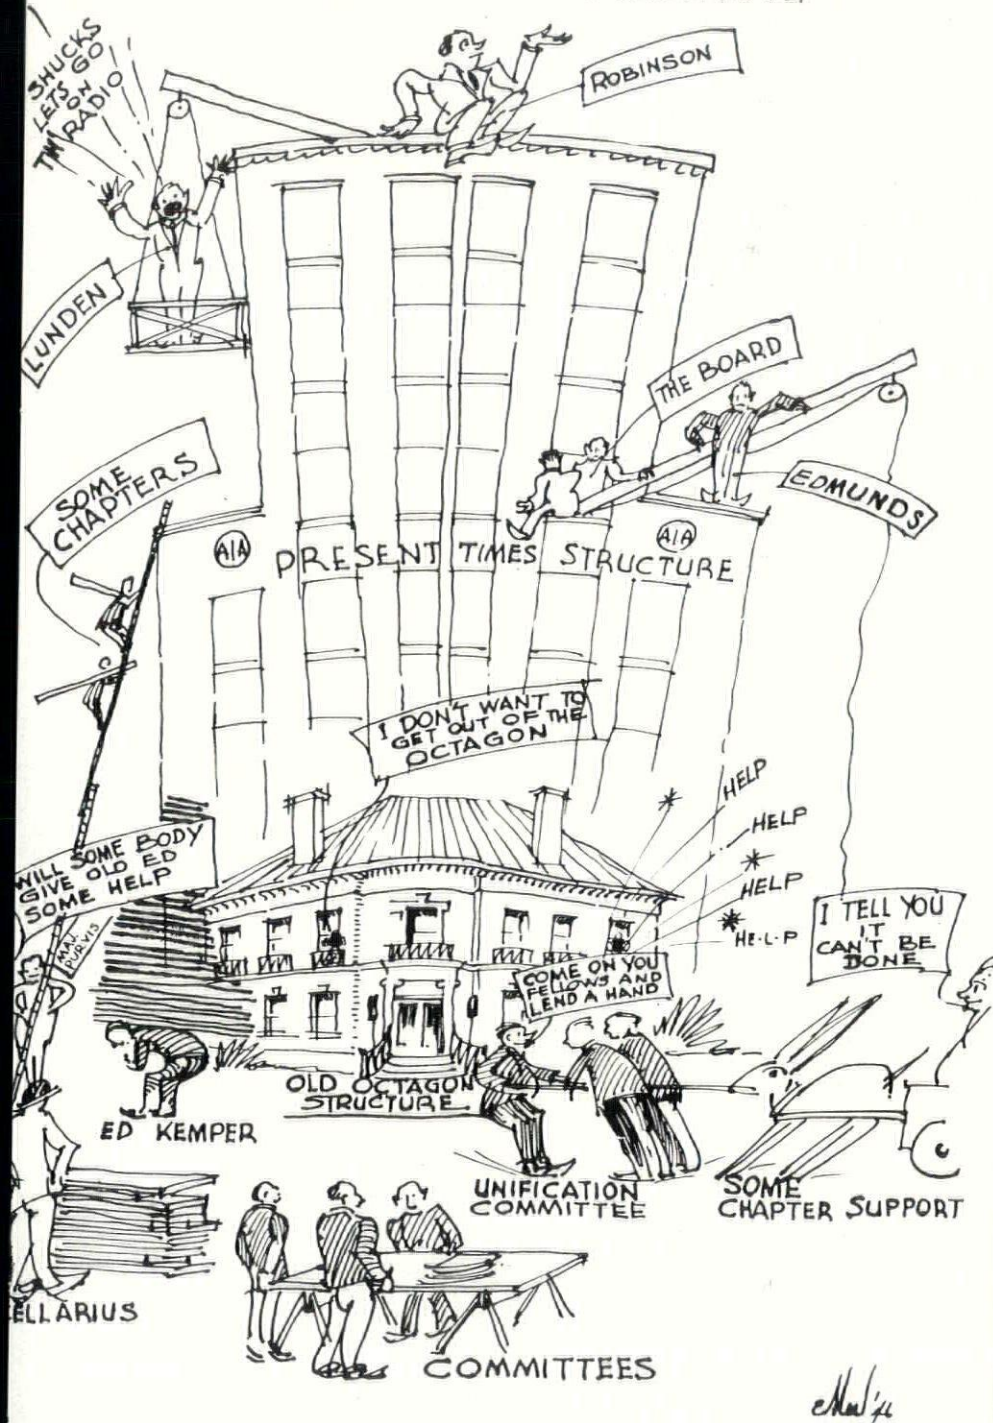 SHUCKS
LETS GO
ON
TH RADIO
ROBINSON
LUNDEN
THE BOARD
EDMUNDS
SOME
CHAPTERS
AIA
AIA
PRESENT TIMES STRUCTURE
I DON'T WANT TO
GET OUT OF THE
OCTAGON
HELP
HELP
HELP
HE-L-P
WILL SOME BODY
GIVE OLD ED
SOME HELP
MAJ.
PURVIS
I TELL YOU
IT
CAN'T BE
DONE
COME ON YOU
FELLOWS AND
LEND A HAND
OLD OCTAGON
STRUCTURE
ED KEMPER
UNIFICATION
COMMITTEE
SOME
CHAPTER SUPPORT
ELLARIUS
COMMITTEES